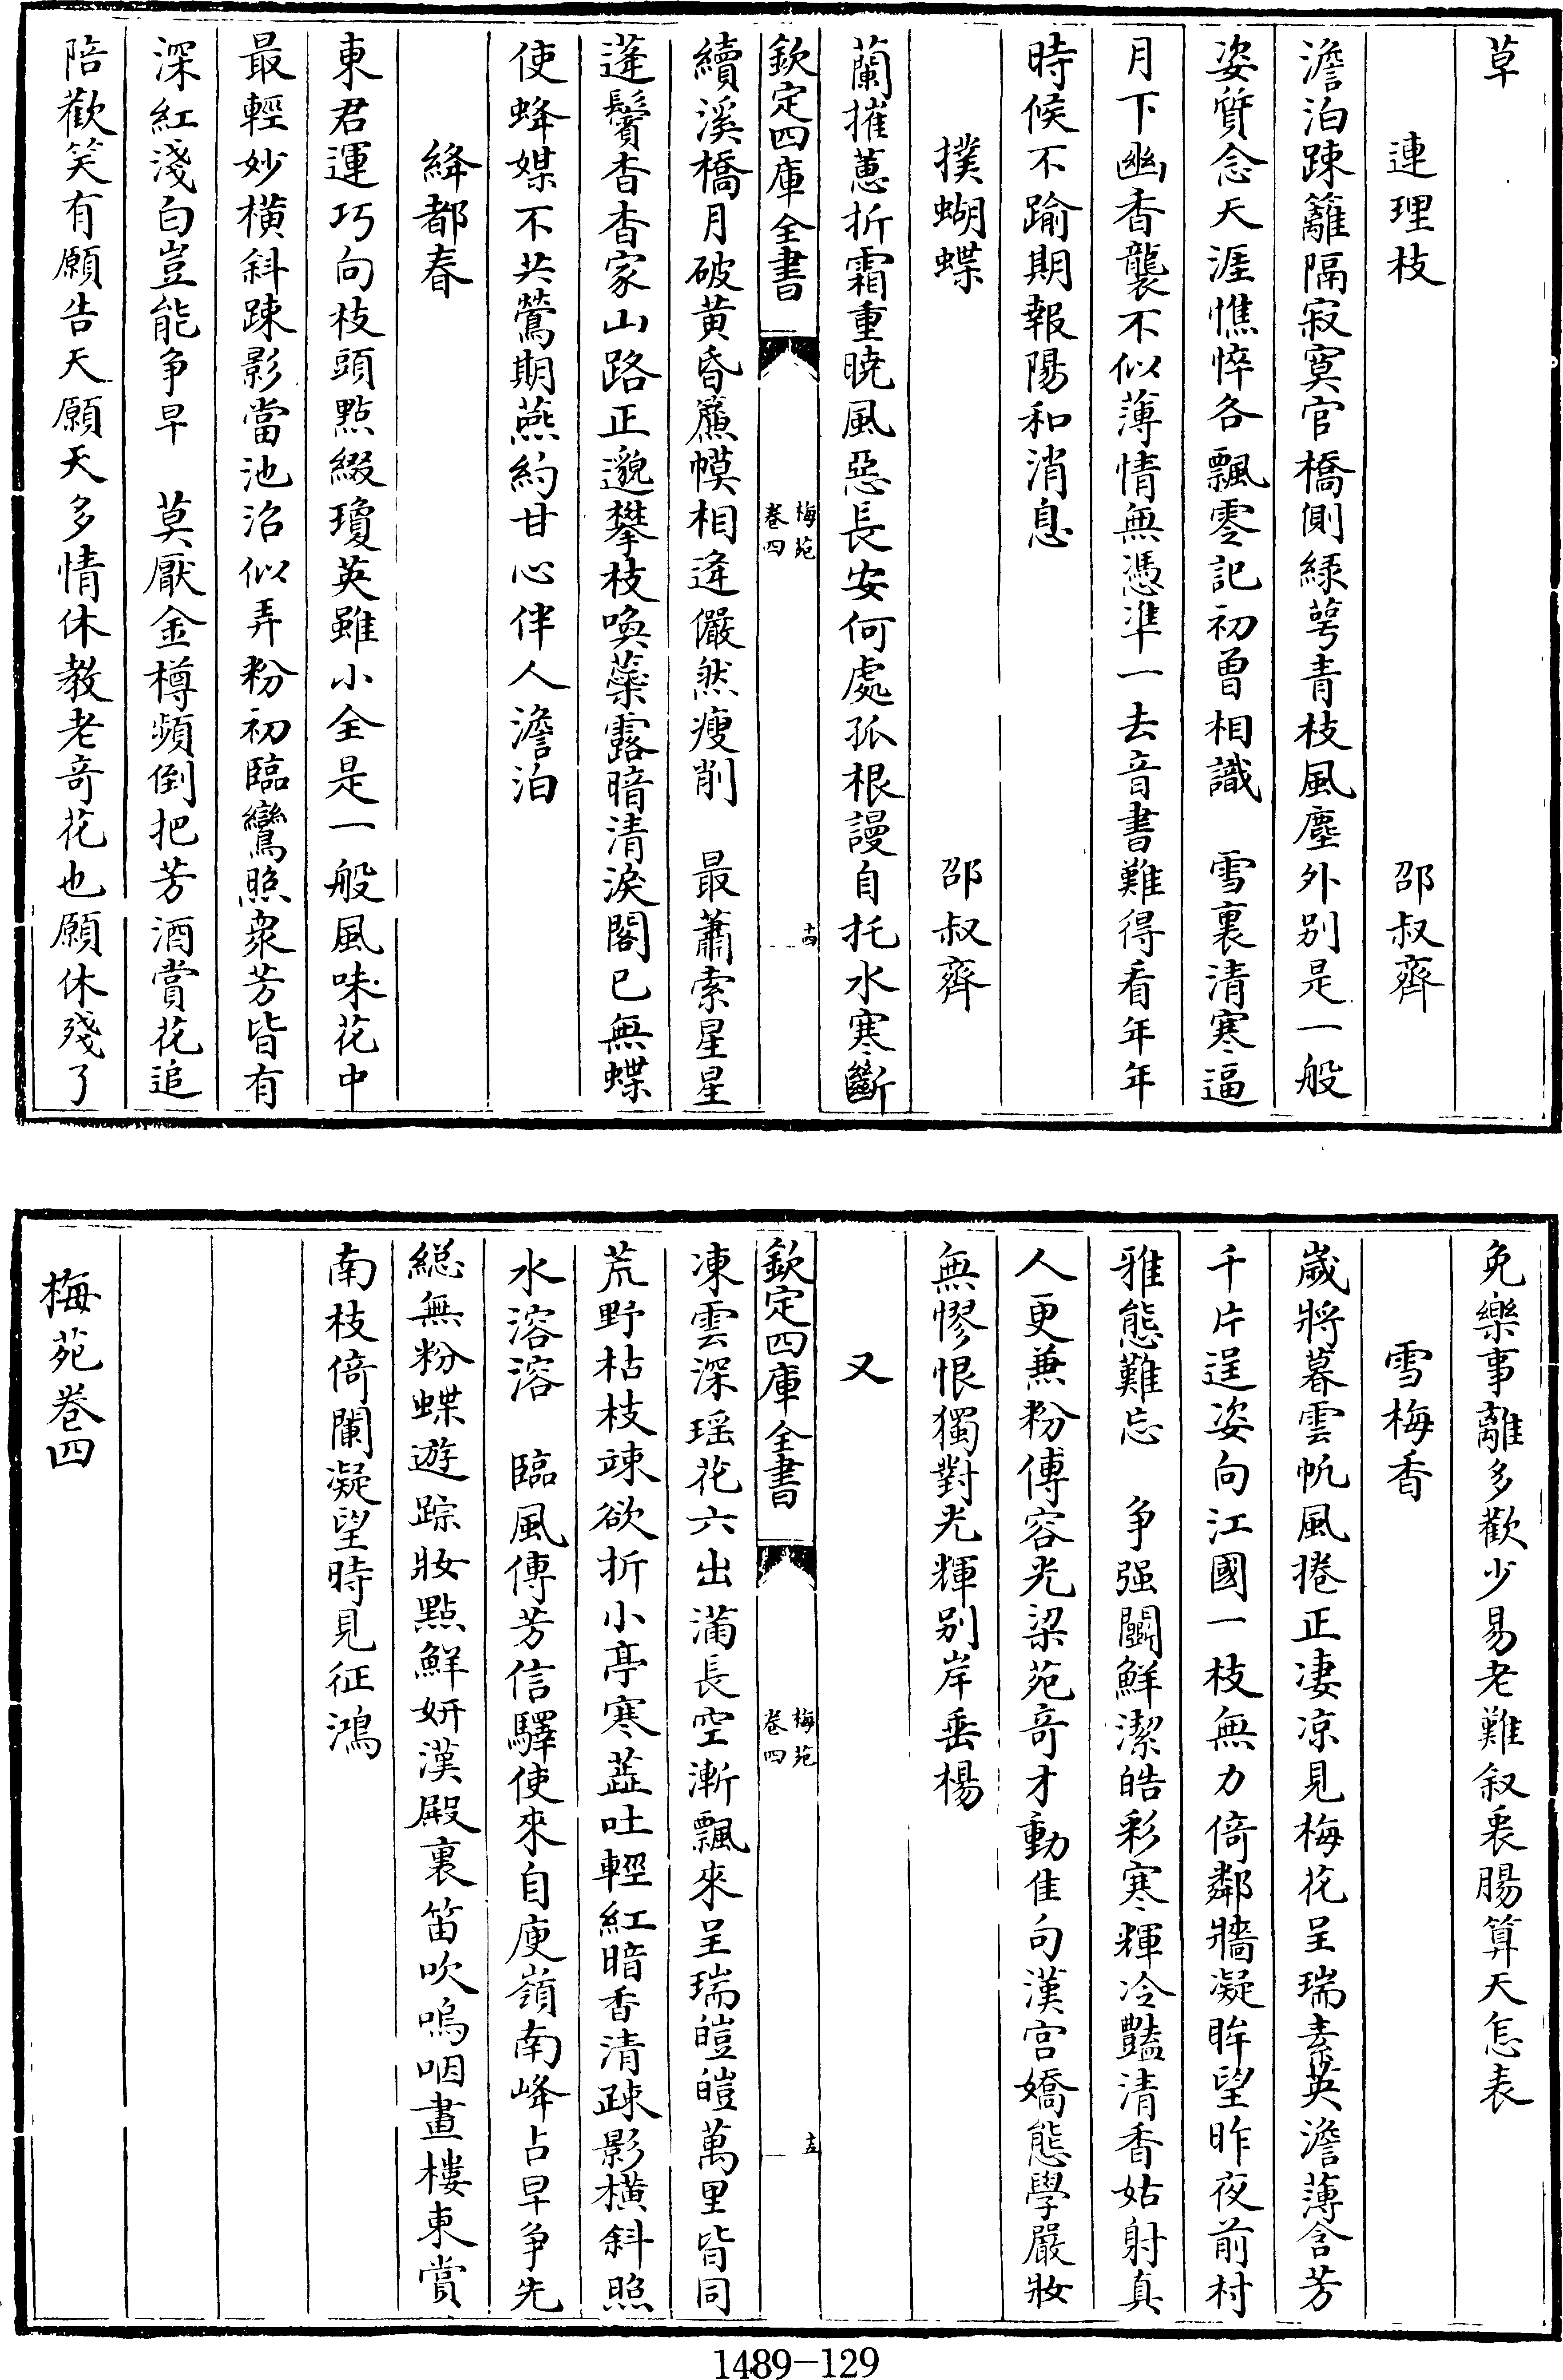 草
連理枝　邵叔齊
澹泊踈籬隔寂寞官橋側緑萼青枝風塵外别是一般
姿質念天涯憔悴各飄零記初曾相識　雪裏清寒逼
月下幽香襲不似薄情無憑凖一去音書難得看年年
時候不踰期報陽和消息
撲蝴蝶　邵叔齊
蘭摧蕙折霜重曉風惡長安何處孤根謾自托水寒斷
欽定四庫全書
梅苑
卷四
十四
續溪橋月破黄昏簾幙相逢儼然瘦削　最蕭索星星
蓬鬢杳杳家山路正邈攀枝嗅蘂露暗清淚閣已無蝶
使蜂媒不共鶯期燕約甘心伴人澹泊
絳都春
東君運巧向枝頭點綴瓊英雖小全是一般風味花中
最輕妙横斜踈影當池沼似弄粉初臨鸞照衆芳皆有
深紅淺白豈能争早　莫厭金樽頻倒把芳酒賞花追
陪歡笑有願告天願天多情休教老竒花也願休殘了
免樂事離多歡少易老難叙衷腸算天怎表
雪梅香
歲將暮雲帆風捲正凄凉見梅花呈瑞素英澹薄含芳
千片逞姿向江國一枝無力倚鄰牆凝眸望昨夜前村
雅態難忘　争强鬬鮮潔皓彩寒輝冷豔清香姑射真
人更兼粉傅容光梁苑竒才動佳句漢宫嬌態學嚴妝
無憀恨獨對光輝别岸垂楊
又
欽定四庫全書
梅苑
卷四
十五
凍雲深瑶花六出滿長空漸飄來呈瑞皚皚萬里皆同
荒野枯枝竦欲折小亭寒蕋吐輕紅暗香清疎影橫斜照
水溶溶　臨風傳芳信驛使來自庾嶺南峰占早争先
緫無粉蝶遊踪妝點鮮妍漢殿裏笛吹嗚咽畫樓東賞
南枝倚闌凝望時見征鴻
梅苑卷四
1489-129